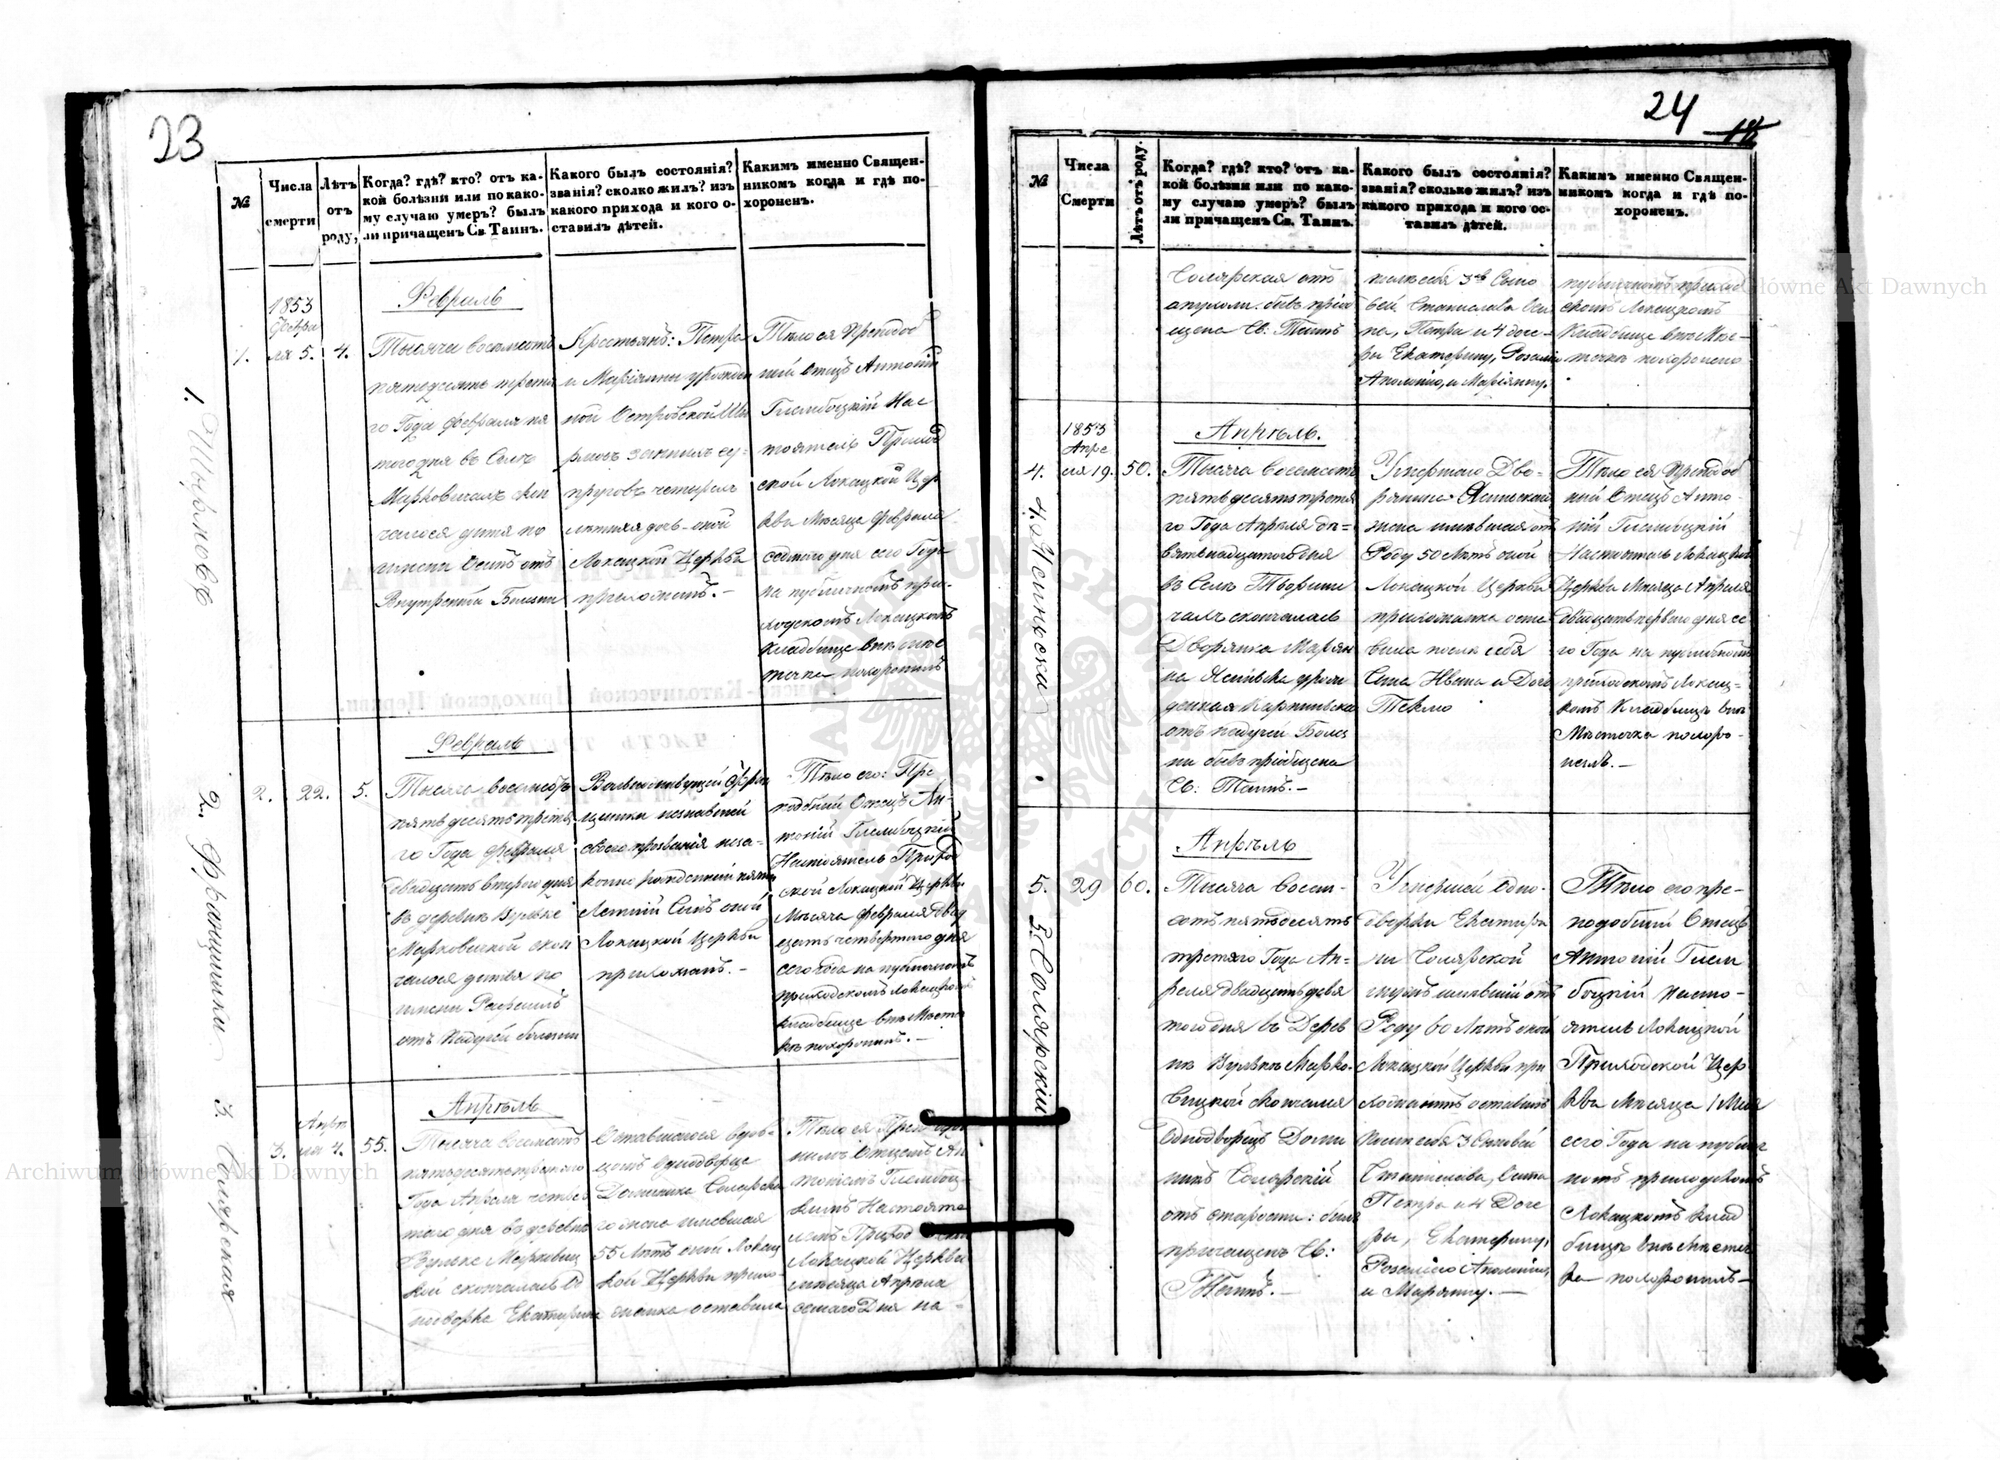 23
№
Числа
смерти
Лѣтъ
отъ
роду,
Когда? гдѣ? кто? отъ ка-
кой болѣзни или по како-
му случаю умеръ? былъ
ли причащенъ Св. Таинъ.
Какого былъ состоянія?
званія? сколко жилъ? изъ
какого прихода и кого о-
ставилъ дѣтей.
Каким именно Священ-
никомъ когда и гдѣ по-
хороненъ.
1853
Февра
1.
ля 5.
4.
Февраль
Тысяча восемьсотъ
пятьдесятъ третья
го Года Февраля пя
таго дня въ Селѣ
Марковичахъ скон
чалося дитя по
имени Осипъ отъ
Внутренней Болезни
Крестьянъ: Петра
и Маріянны урожден
ной Островской
пруговъ
Локацкой Церкви
прихожанъ. —
Тѣло ея Преподоб
ній Отецъ Антоній
Глембоцкій Нас
тоятель Приход
ской Локацкой Цер
кви Мѣсяца Февраля
седмого дня сего Года
на публичномъ при-
ходскомъ Локацкомъ
кладбище внѣ мѣс
течка похоронилъ
2.
22.
5.
Февраль
Тысяча восемьсотъ
пятьдесятъ третья
го Года Февраля
двадцать второго дня
въ деревнѣ Вулькѣ
Марковицкой скон
чалося дитя по
имени
отъ Падучей болезни
своего прозванія неза-
конно рожденній пяти
Летній Сынъ оной
Локацкой Церкви
прихожанъ. —
Тѣло его: Пре
подобній Отецъ Ан-
тоній Глембоцкій
Настоятель Приход
ской Локацкой Церкви
Мѣсяца Февраля двад
цать четвертого дня
сего Года на публичномъ
приходскомъ Локацкомъ
кладбище внѣ Мѣстеч
ка похоронилъ. —
3.
Апре
ля 4.
55.
Апрѣль
Тысяча восемьсотъ
пятьдесятъ третьяго
Года Апреля четвер
того дня въ деревнѣ
Вулькѣ Марковиц
кой скончалась Од
нодворка Екатерина
Оставшагося вдов-
цомъ Однодворца
Доминика Солярска
го жена имевшая
55 Лѣтъ оной Локац
кой Церкви прихо-
жанка оставила
Тѣло ея
Отцемъ Ан
тоніемъ Глембоц-
кимъ Настояте
лемъ Приход
Локацкой Церкви
мѣсяца Апреля
Дня на-
1.
2. Францишки
3. Солярская
24
№
Числа
Смерти
Лѣтъ отъ роду.
Когда? гдѣ? кто? отъ ка-
кой болѣзни или по како-
му случаю умеръ? былъ
ли причащенъ Св. Таинъ.
Какого былъ состоянія?
званія? сколько жилъ? изъ
какого прихода и кого ос-
тавилъ дѣтей.
Какимъ именно Священ-
никомъ когда и гдѣ по-
хороненъ.
Солярская отъ
опухоли бывъ пріоб
щена Св: Таинъ
после себя 3хъ Сыно
вей Станислава Оси
па, Петра и 4 доче-
ри Екатерину, Розалію
Аполонію, и Маріянну.
публичномъ приход
скомъ Локацкомъ
Кладбище внѣ Мѣс-
течка похоронено
1853
Апре
4.
ля 19.
50.
Апрѣль.
Тысяча восемьсотъ
пятьдесятъ третья
го Года Апреля де-
вятьнадцатого дня
въ Селѣ Твори
чахъ скончалась
Дворянка Марьян
на Ясиньска урож
денная Карпинска
отъ падучей Болез
ни бывъ пріобщена
Св: Таинъ. —
Умершаго Дво-
рянина Ясинской
жена имевшая отъ
Роду 50 Лѣтъ оной
Локацкой Церкви
прихожанка оста
вила после себя
Сына Ивана и Дочь
Теклю
Тѣло ея Преподоб
ній Отецъ Анто-
ній Глембоцкій
Настоятель Локацкой
Церкви Мѣсяца Апреля
двадцать первого дня се
го Года на публичномъ
приходскомъ Локац-
комъ Кладбище внѣ
Мѣстечка похоро-
нилъ. —
5.
29
60.
Апрѣль
Тысяча восем-
сотъ пятдесятъ
третяго Года Ап-
реля двадцать девя
того дня въ Дерев
нѣ Вулькѣ Марко-
вицкой скончался
Однодворецъ Доми
никъ Солярскій
отъ старости: былъ
причащенъ Св:
Таинъ. —
Умершей Одно-
дворки Екатери
ни Солярской
мужъ имевшій отъ
Роду 60 Лѣтъ оной
Локацкой Церкви при
хожанинъ оставилъ
после себя 3 Сыновей
Станислава, Осипа
Петра и 4 Доче
ри, Екатерину,
Розалію Аполонію,
и Марянну. —
Тѣло его пре-
подобній Отецъ
Антоній Глем
боцкій Насто-
ятель Локацкой
Приходской Цер
кви Мѣсяца 1 Мая
сего Года на публич
номъ приходскомъ
Локацкомъ клад
бищѣ внѣ Мѣстеч
ка похоронилъ —
4. Ясиньска
5. Солярскій
Archiwum Główne Akt Dawnych
Główne Akt Dawnych